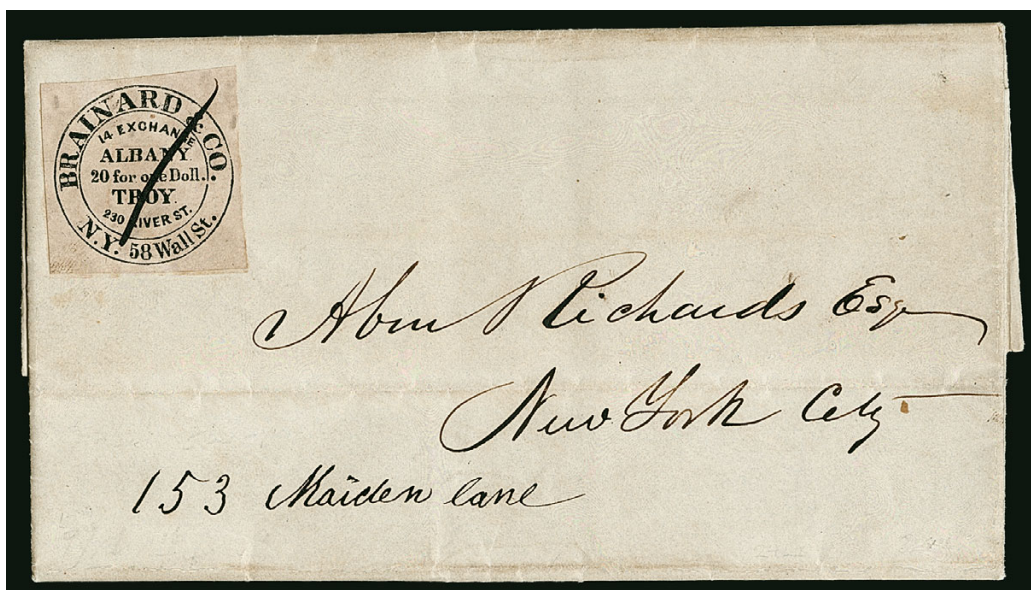 BRAINARD & CO.
14 EXCHANGE
ALBANY
20 for one Doll.
TROY.
230 RIVER ST.
N.Y. 58 Wall St.
Abm Richards Esq
New York City
153 Maiden lane